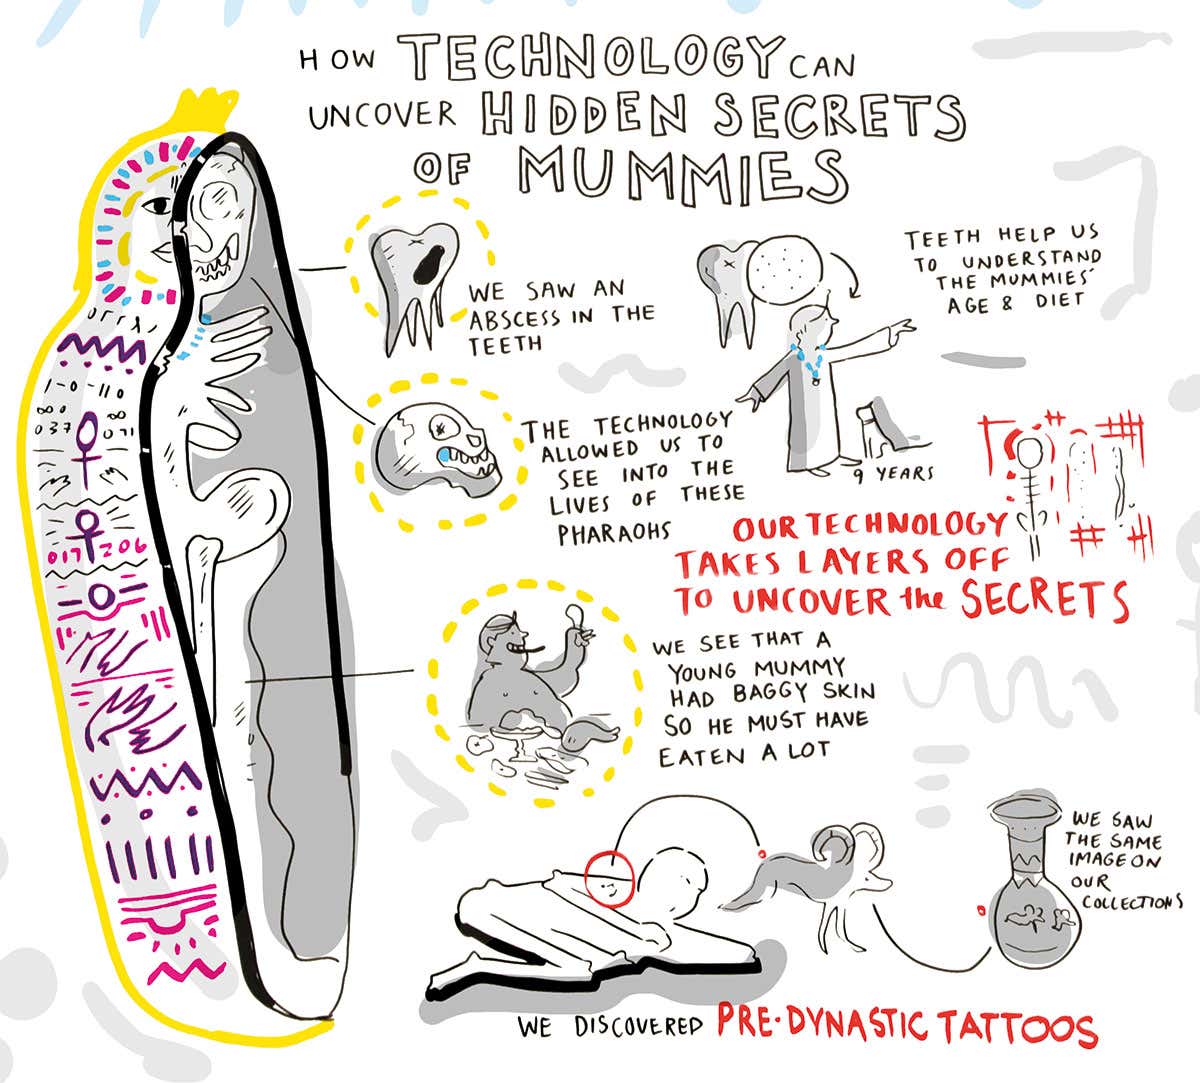 HOW TECHNOLOGY CAN
UNCOVER HIDDEN SECRETS
OF MUMMIES
WE SAW AN
ABSCESS IN THE
TEETH
TEETH HELP US
TO UNDERSTAND
THE MUMMIES'
AGE & DIET
9 YEARS
THE TECHNOLOGY
ALLOWED US TO
SEE INTO THE
LIVES OF THESE
PHARAOHS
OUR TECHNOLOGY
TAKES LAYERS OFF
TO UNCOVER the SECRETS
WE SEE THAT A
YOUNG MUMMY
HAD BAGGY SKIN
SO HE MUST HAVE
EATEN A LOT
WE SAW
THE SAME
IMAGE ON
OUR
COLLECTIONS
WE DISCOVERED PRE-DYNASTIC TATTOOS
1-0-110
037 071
017 206